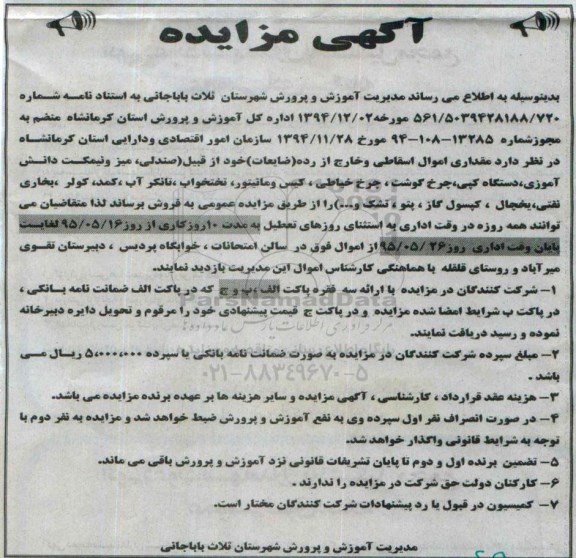 آگهی مزایده
بدینوسیله به اطلاع می رساند مدیریت آموزش و پرورش شهرستان ثلاث باباجانی به استناد نامه شماره
۵۶۱/۵۰۳۹۴۲۸۱۸۸/۷۲۰ مورخه ۱۳۹۴/۱۲/۰۲ اداره کل آموزش و پرورش استان کرمانشاه منضم به
مجوزشماره ۱۳۲۸۵-۱۰۸-۹۴ مورخ ۱۳۹۴/۱۱/۲۸ سازمان امور اقتصادی ودارایی استان کرمانشاه
در نظر دارد مقداری اموال اسقاطی وخارج از رده(ضایعات)خود از قبیل(صندلی، میز ونیمکت دانش
آموزی،دستگاه کپی،چرخ گوشت ، چرخ خیاطی ، کیس ومانیتور، تختخواب ،تانکر آب ،کمد، کولر ،بخاری
نفتی،یخچال ، کپسول گاز ، پتو ، تشک و...)را از طریق مزایده عمومی به فروش برساند لذا متقاضیان می
توانند همه روزه در وقت اداری به استثنای روزهای تعطیل به مدت ۱۰روزکاری از روز۹۵/۰۵/۱۶ لغایت
پایان وقت اداری روز ۹۵/۰۵/۲۶ از اموال فوق در سالن امتحانات ، خوابگاه پردیس ، دبیرستان تقوی
میرآباد و روستای قلقله با هماهنگی کارشناس اموال این مدیریت بازدید نمایند.
۱- شرکت کنندگان در مزایده با ارائه سه فقره پاکت الف ،ب و ج که در پاکت الف ضمانت نامه بانکی ،
در پاکت ب شرایط امضا شده مزایده و در پاکت ج قیمت پیشنهادی خود را مرقوم و تحویل دایره دبیرخانه
نموده و رسید دریافت نمایند.
۲- مبلغ سپرده شرکت کنندگان در مزایده به صورت ضمانت نامه بانکی یا سپرده ۵،۰۰۰،۰۰۰ ریال می
باشد .
۳- هزینه عقد قرارداد ، کارشناسی ، آگهی مزایده و سایر هزینه ها بر عهده برنده مزایده می باشد.
۴- در صورت انصراف نفر اول سپرده وی به نفع آموزش و پرورش ضبط خواهد شد و مزایده به نفر دوم با
توجه به شرایط قانونی واگذار خواهد شد.
۵- تضمین برنده اول و دوم تا پایان تشریفات قانونی نزد آموزش و پرورش باقی می ماند.
۶- کارکنان دولت حق شرکت در مزایده را ندارند .
۷- کمیسیون در قبول یا رد پیشنهادات شرکت کنندگان مختار است.
مدیریت آموزش و پرورش شهرستان ثلاث باباجانی
ParsNamadData
۰۲۱-۸۸۳۴۹۶۷۰-۵